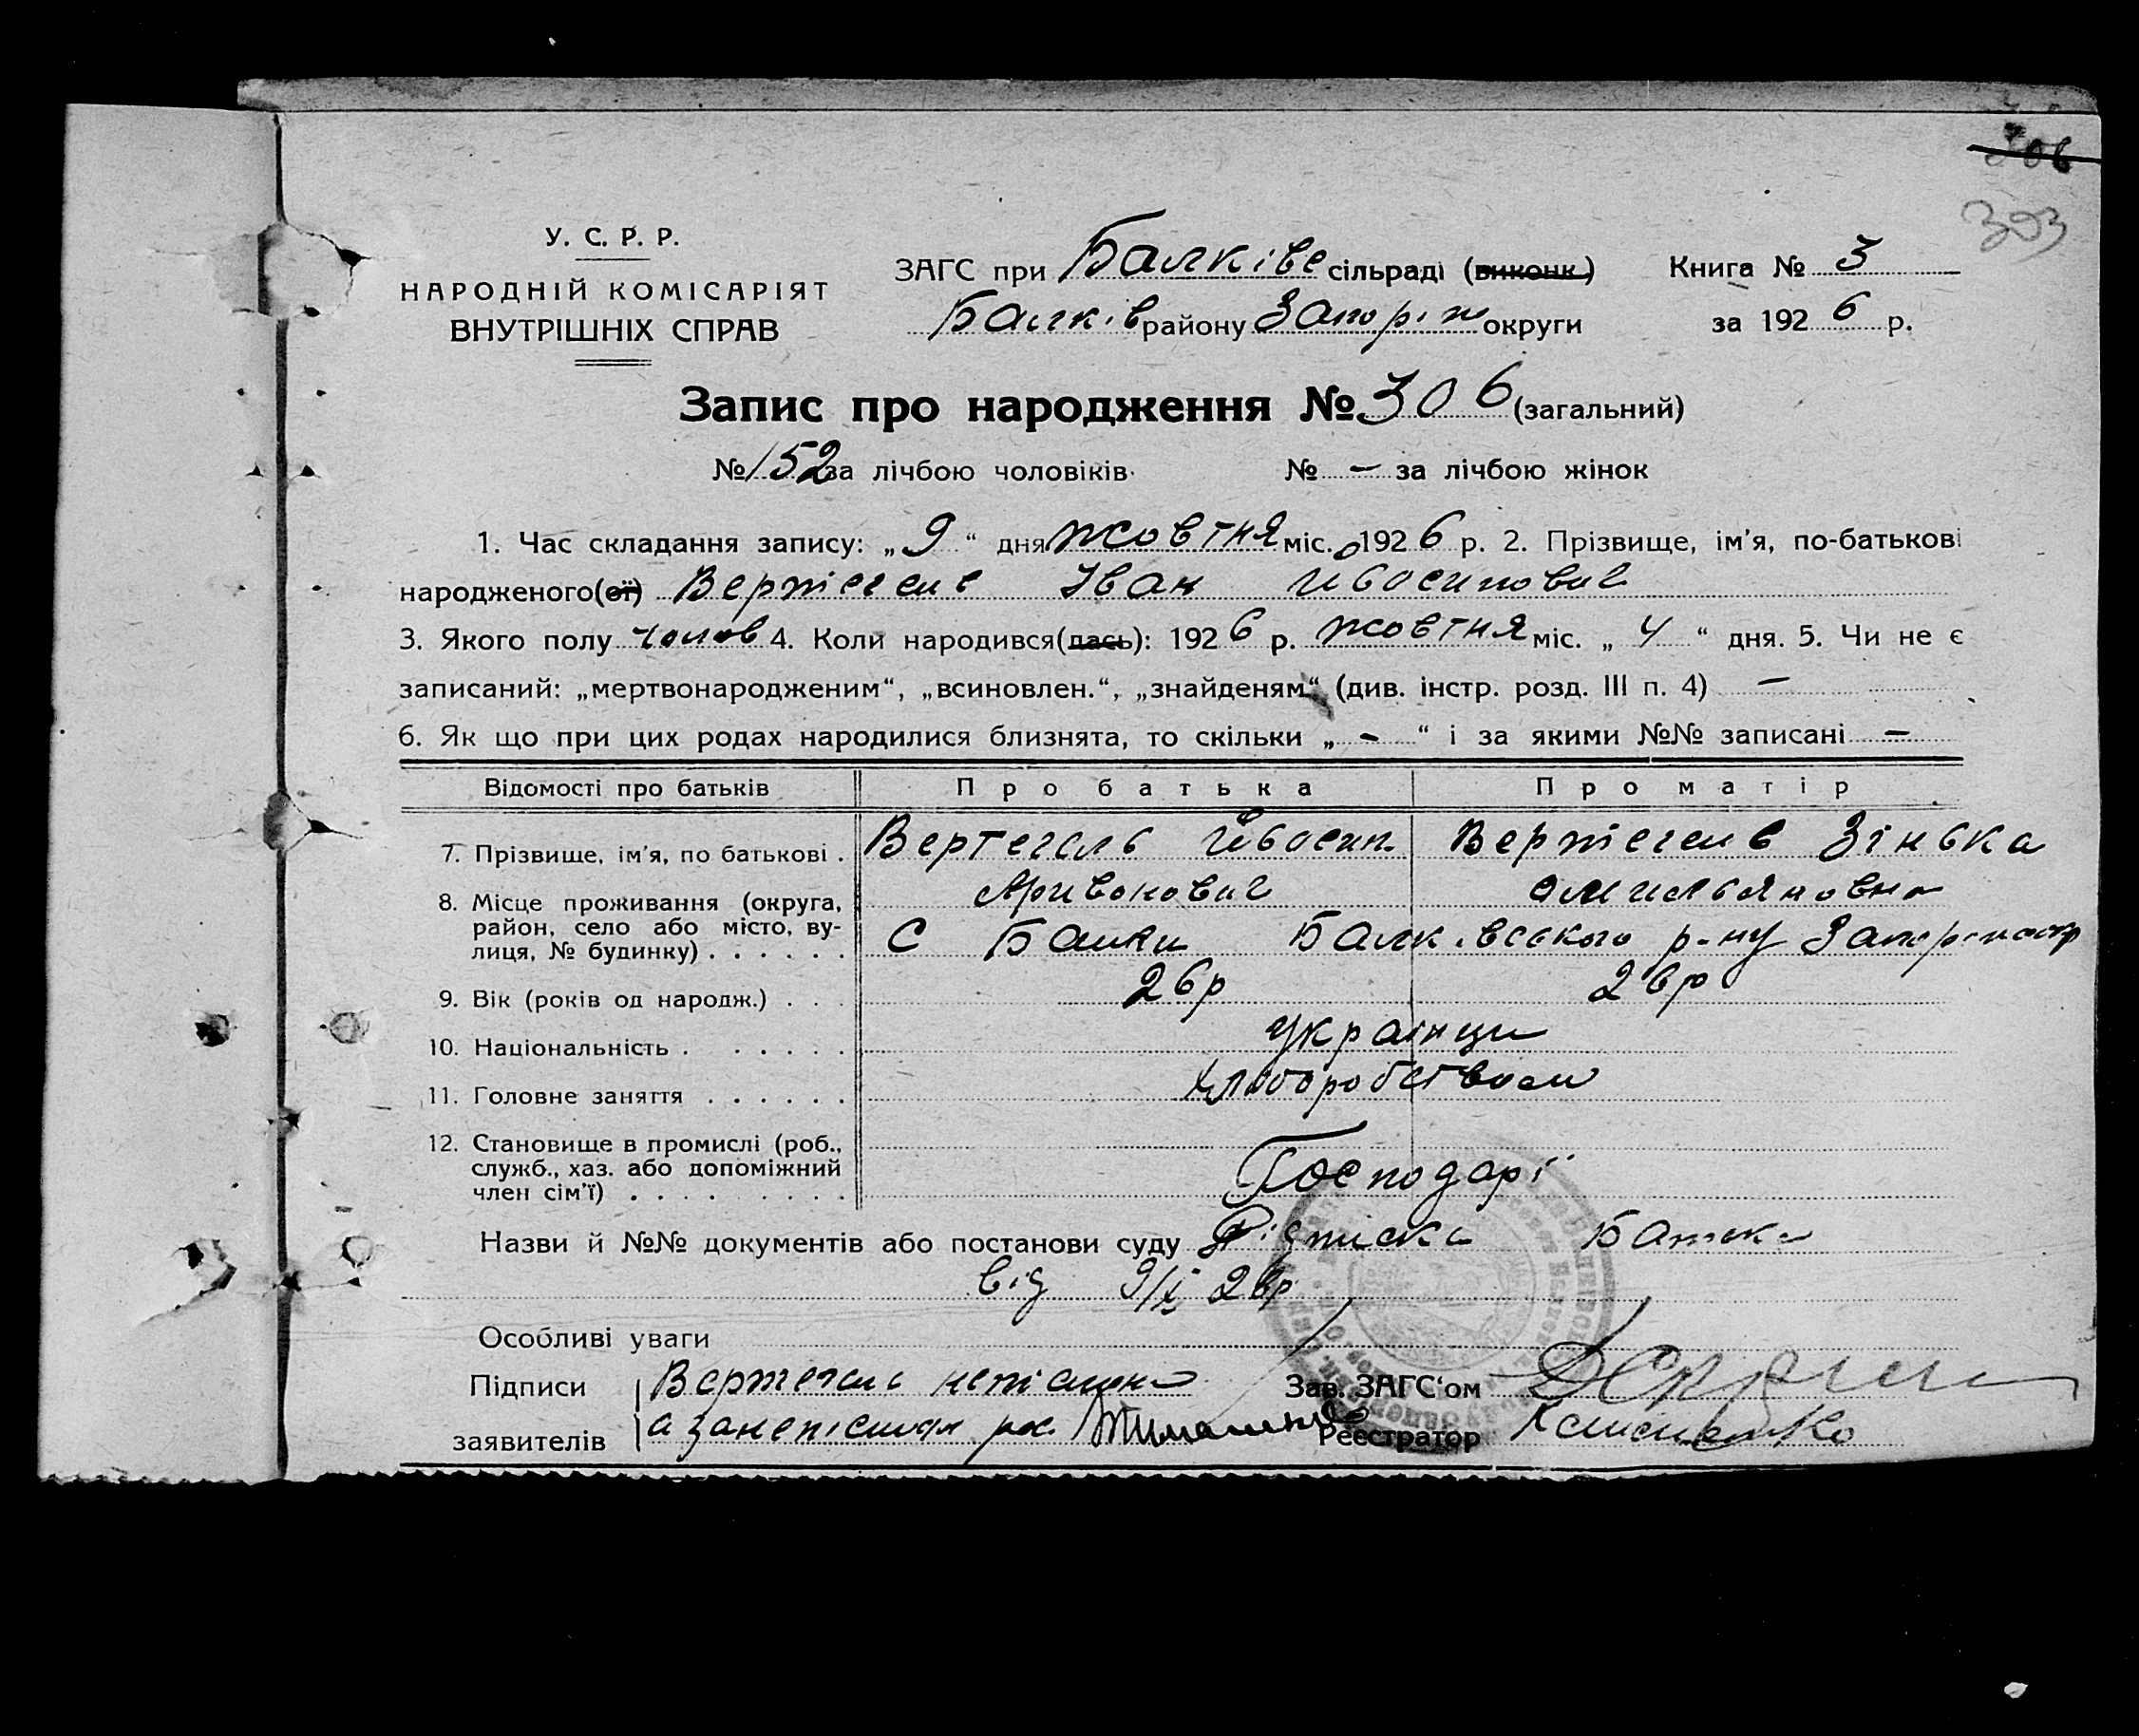 306
303
У. С. Р. Р.
НАРОДНІЙ КОМІСАРІЯТ
ВНУТРІШНІХ СПРАВ
ЗАГС при Балківс сільраді (виконк.)
Балків району Запоріж округи
Книга № 3
за 1926 р.
Запис про народження № 306 (загальний)
№ 152 за лічбою чоловіків. № — за лічбою жінок
1. Час складання запису: „9“ дня жовтня міс. 1926 р. 2. Прізвище, ім'я, по-батькові
народженого(ої) Вертегель Іван Йвосипович
3. Якого полу чолов 4. Коли народився(лась): 1926 р. жовтня міс. „4“ дня. 5. Чи не є
записаний: „мертвонародженим“, „всиновлен.“, „знайденям“ (див. інстр. розд. III п. 4) —
6. Як що при цих родах народилися близнята, то скільки „ - “ і за якими №№ записані —
Відомості про батьків Про батька Про матір
7. Прізвище, ім'я, по батькові . Вертегель Йвосип Вертегель Зінька
Омильяновна
8. Місце проживання (округа, район, село або місто, вулиця, № будинку) . . . . . . С Балки Балківського р-ну
9. Вік (років од народж.) . . . 26р 26р
10. Національність . . . . . . Українци
11. Головне заняття . . . . . . Хліборобством
12. Становище в промислі (роб., служб., хаз. або допоміжний член сім'ї) . . . . . . . . . Господарі
Назви й №№ документів або постанови суду Підписка Батька
від 9/X 26р
Особливі уваги
Підписи Вертегель
заявителів а
Зав. ЗАГС'ом
Реєстратор